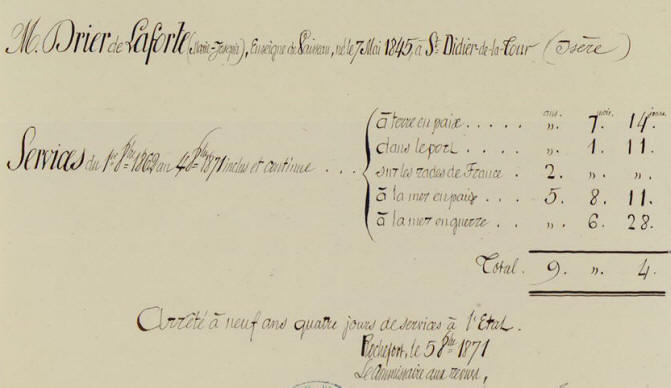 M. Drier de Laforte (Marie-Joseph), Enseigne de Vaisseau, né le 7 Mai 1845, à St Didier-de-la-Tour (Isère)
ans. mois. jours.
à terre en paix . . . . . ". 7. 14.
dans le port . . . . . ". 1. 11.
Services du 1er 8bre 1862 au 4 8bre 1871 inclus et continue . . . sur les rades de France . 2. ". ".
à la mer en paix . . . . 5. 8. 11.
à la mer en guerre . . ". 6. 28.
Total. 9. ". 4.
Arrêté à neuf ans quatre jours de services à l'Etat.
Rochefort, le 5 8bre 1871
Le Commissaire aux revues,